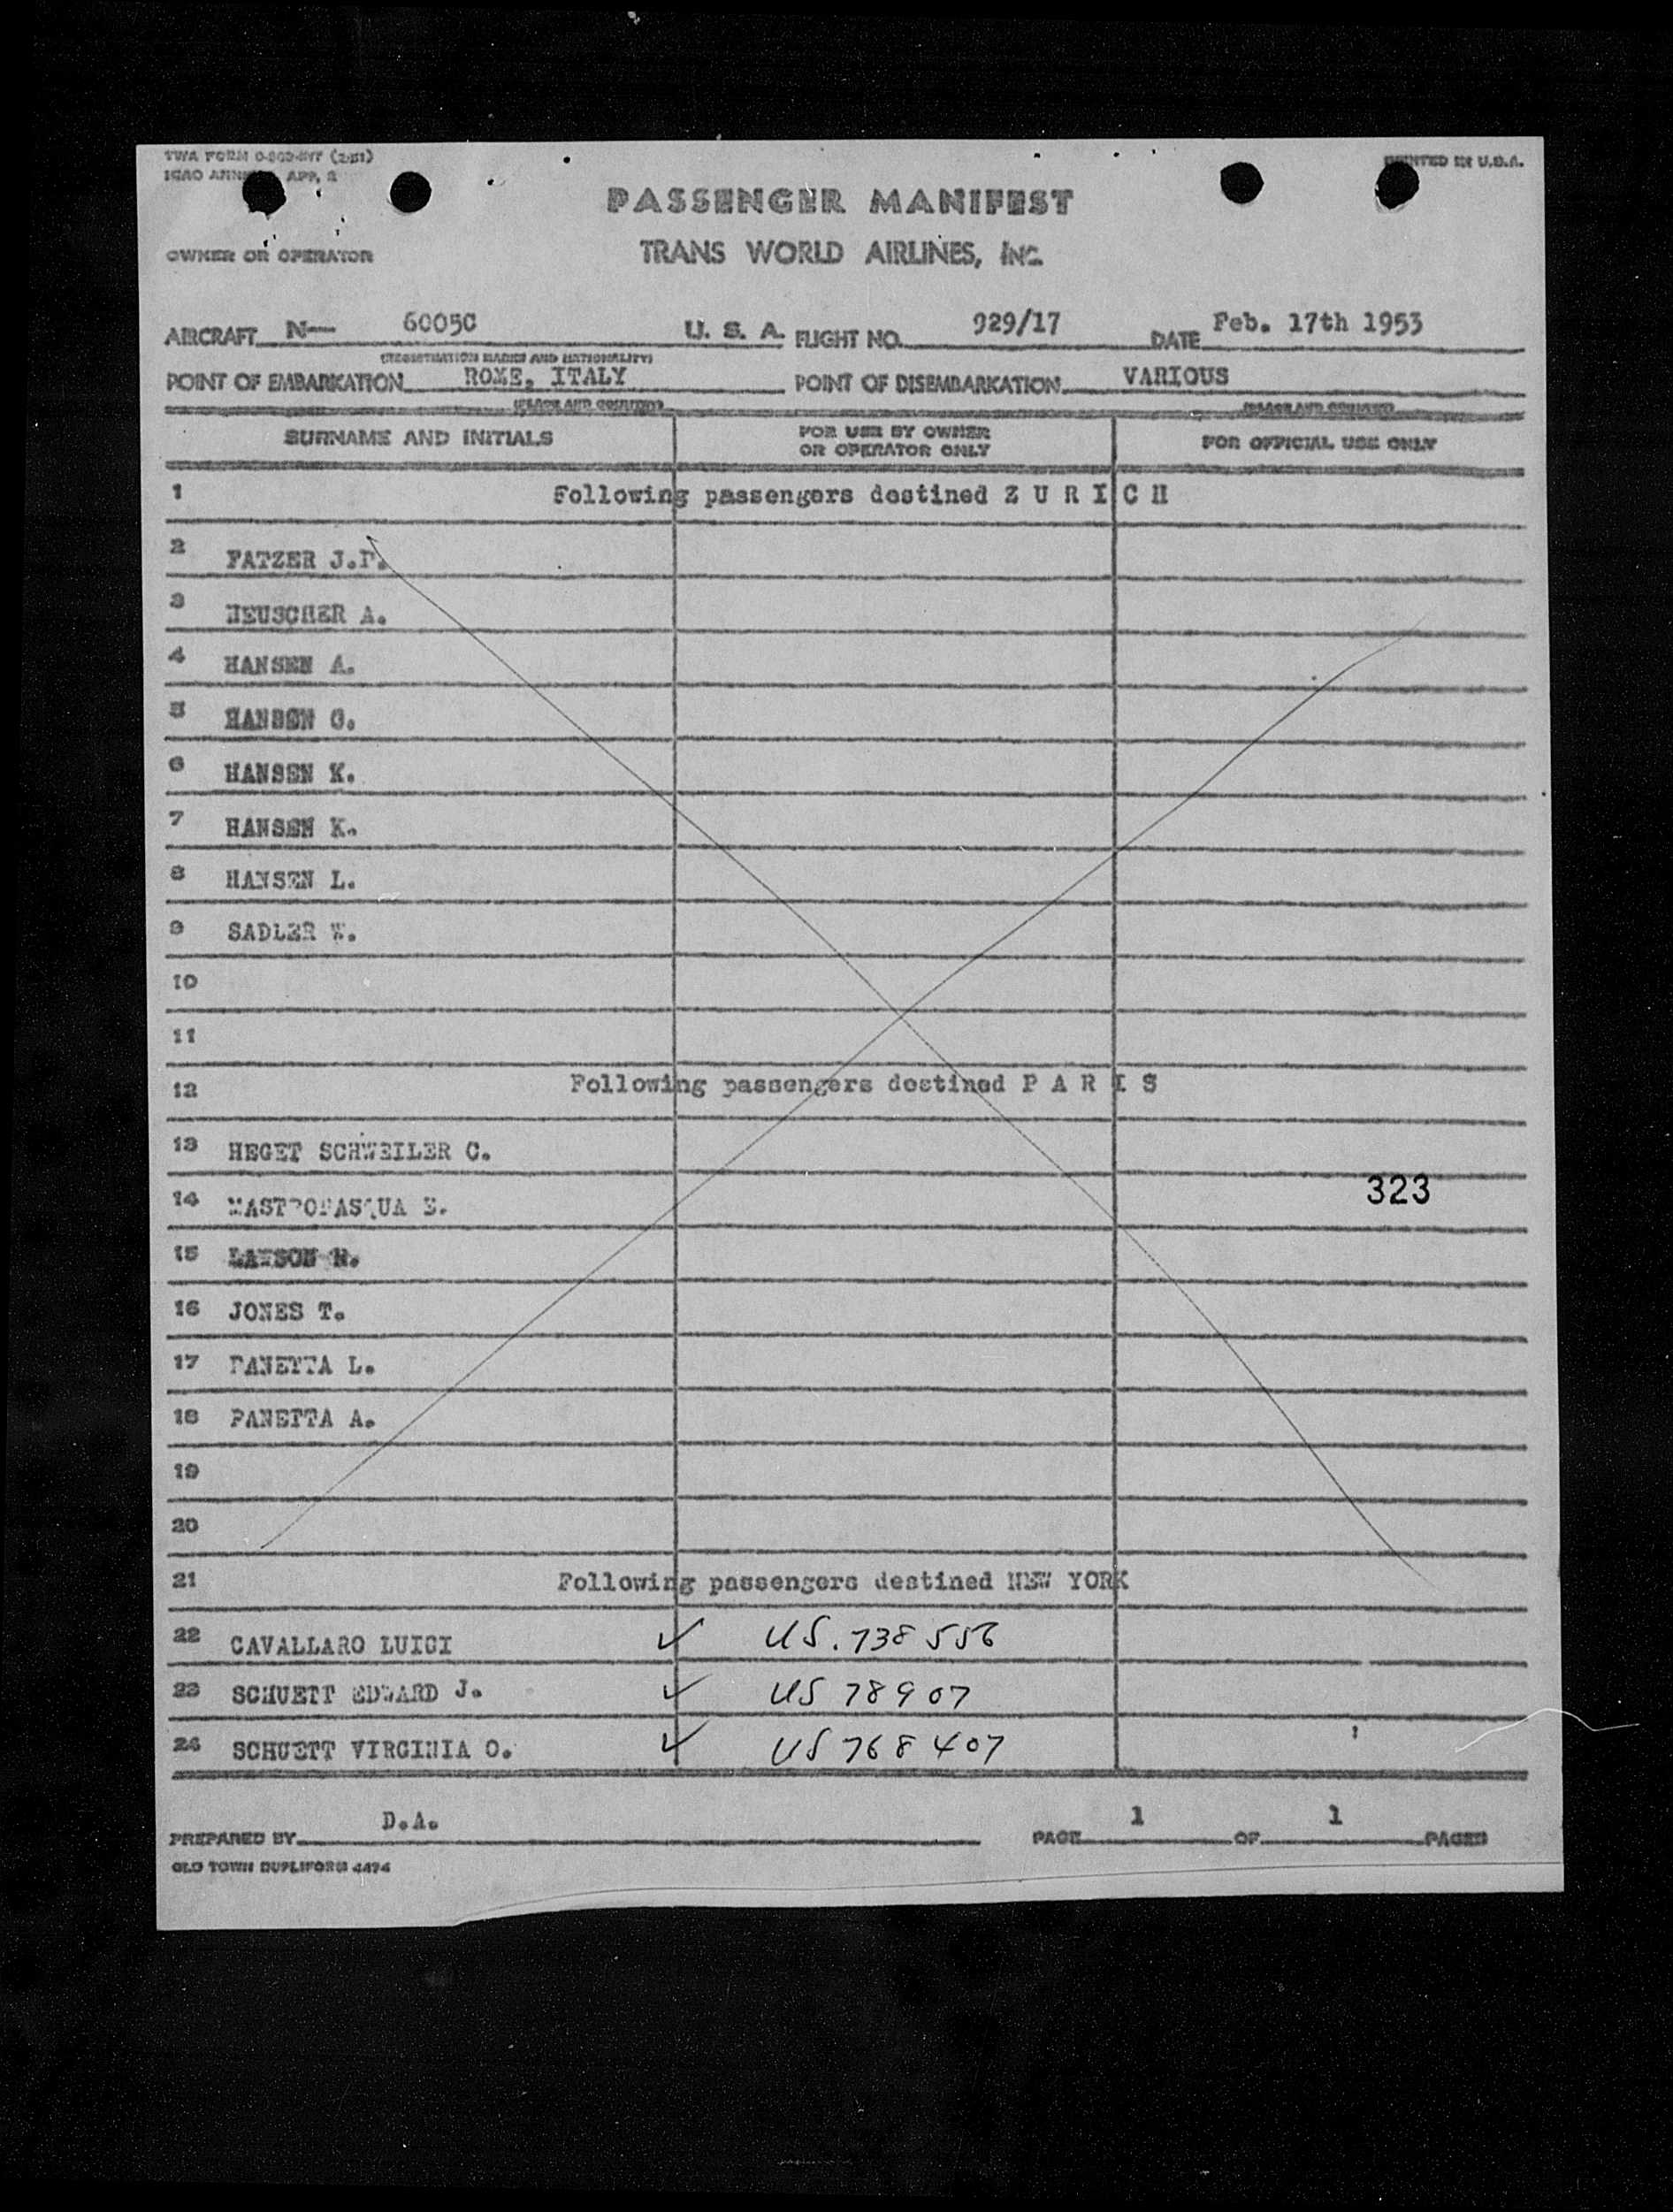 TWA FORM (2-51) PRINTED IN U.S.A.
ICAO APP. 2
PASSENGER MANIFEST
OWNER OR OPERATOR TRANS WORLD AIRLINES, INC.
AIRCRAFT N— 6005C U. S. A. FLIGHT NO. 929/17 DATE Feb. 17th 1953
(REGISTRATION MARKS AND NATIONALITY)
POINT OF EMBARKATION ROME, ITALY POINT OF DISEMBARKATION VARIOUS
(PLACE AND COUNTRY) (PLACE AND COUNTRY)
SURNAME AND INITIALS FOR USE BY OWNER OR OPERATOR ONLY FOR OFFICIAL USE ONLY
1 Following passengers destined Z U R I C H
2 FATZER J.
3 HEUSCHER A.
4 HANSEN A.
5 HANSEN G.
6 HANSEN K.
7 HANSEN K.
8 HANSEN L.
9 SADLER W.
10
11
12 Following passengers destined P A R I S
13 HEGET SCHWEILER C.
14 MASTROPASQUA E. 323
15
16 JONES T.
17 PANETTA L.
18 PANETTA A.
19
20
21 Following passengers destined NEW YORK
22 CAVALLARO LUIGI ✓ US. 738556
23 SCHUETT EDWARD J. ✓ US 78907
24 SCHUETT VIRGINIA O. ✓ US 768407
PREPARED BY D.A. PAGE 1 OF 1 PAGES
OLD TOWN DUPLIFORM 4474